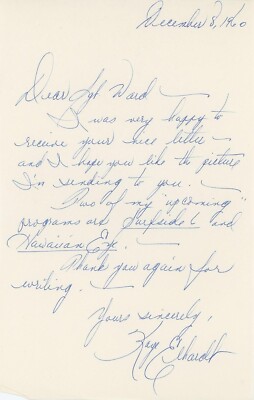 December 8, 1960
Dear Sgt Ward –
I was very happy to
receive your nice letter –
and I hope you like the picture
I'm sending to you. –
Two of my "upcoming"
programs are Surfside 6 and
Hawaiian Eye. –
Thank you again for
writing. –
Yours sincerely,
Kaye Elhardt